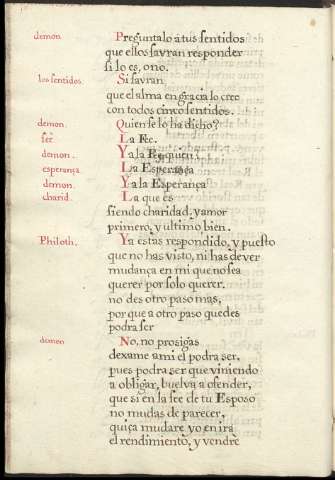 demon Preguntalo atus sentidos
que ellos savran responder
si lo es, o no.
los sentidos. Si savran
que el alma en gracia lo creo
con todos cinco sentidos.
demon. Quien se lo ha dicho?
feê La Fee.
demon. Y a la Fee quien?
esperança. La Esperança
demon. Y a la Esperança
charid. La que es
siendo charidad, y amor
primero, y ultimo bien.
Philoth. Ya estas respondido, y puesto
que no has visto, ni has de ver
mudança en mi que no sea
querer por solo querer.
no des otro paso mas,
por que a otro paso quedes
podra ser
demon No, no prosigas
dexame a mi el podra ser,
pues podra ser que viniendo
a obligar, buelva a ofender,
que si en la fee de tu Esposo
no mudas de parecer,
quiça mudare yo en ira
el rendimiento, y vendrè